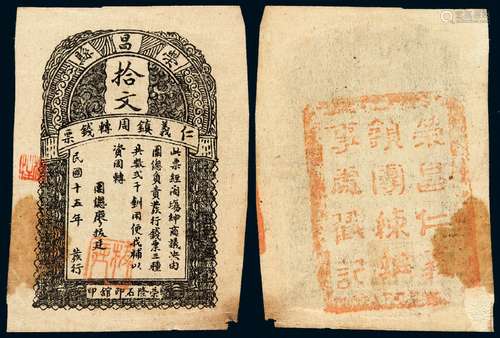 榮昌縣
拾文
仁義鎮周轉錢票
此票經商場紳商議決由
團總負責發行錢票三種
共數弍千釧用便找補以
資周轉
團總廖
民國十五年 發行
榮隆石印舘印
榮昌仁義
鎮團練辦
事處戳記